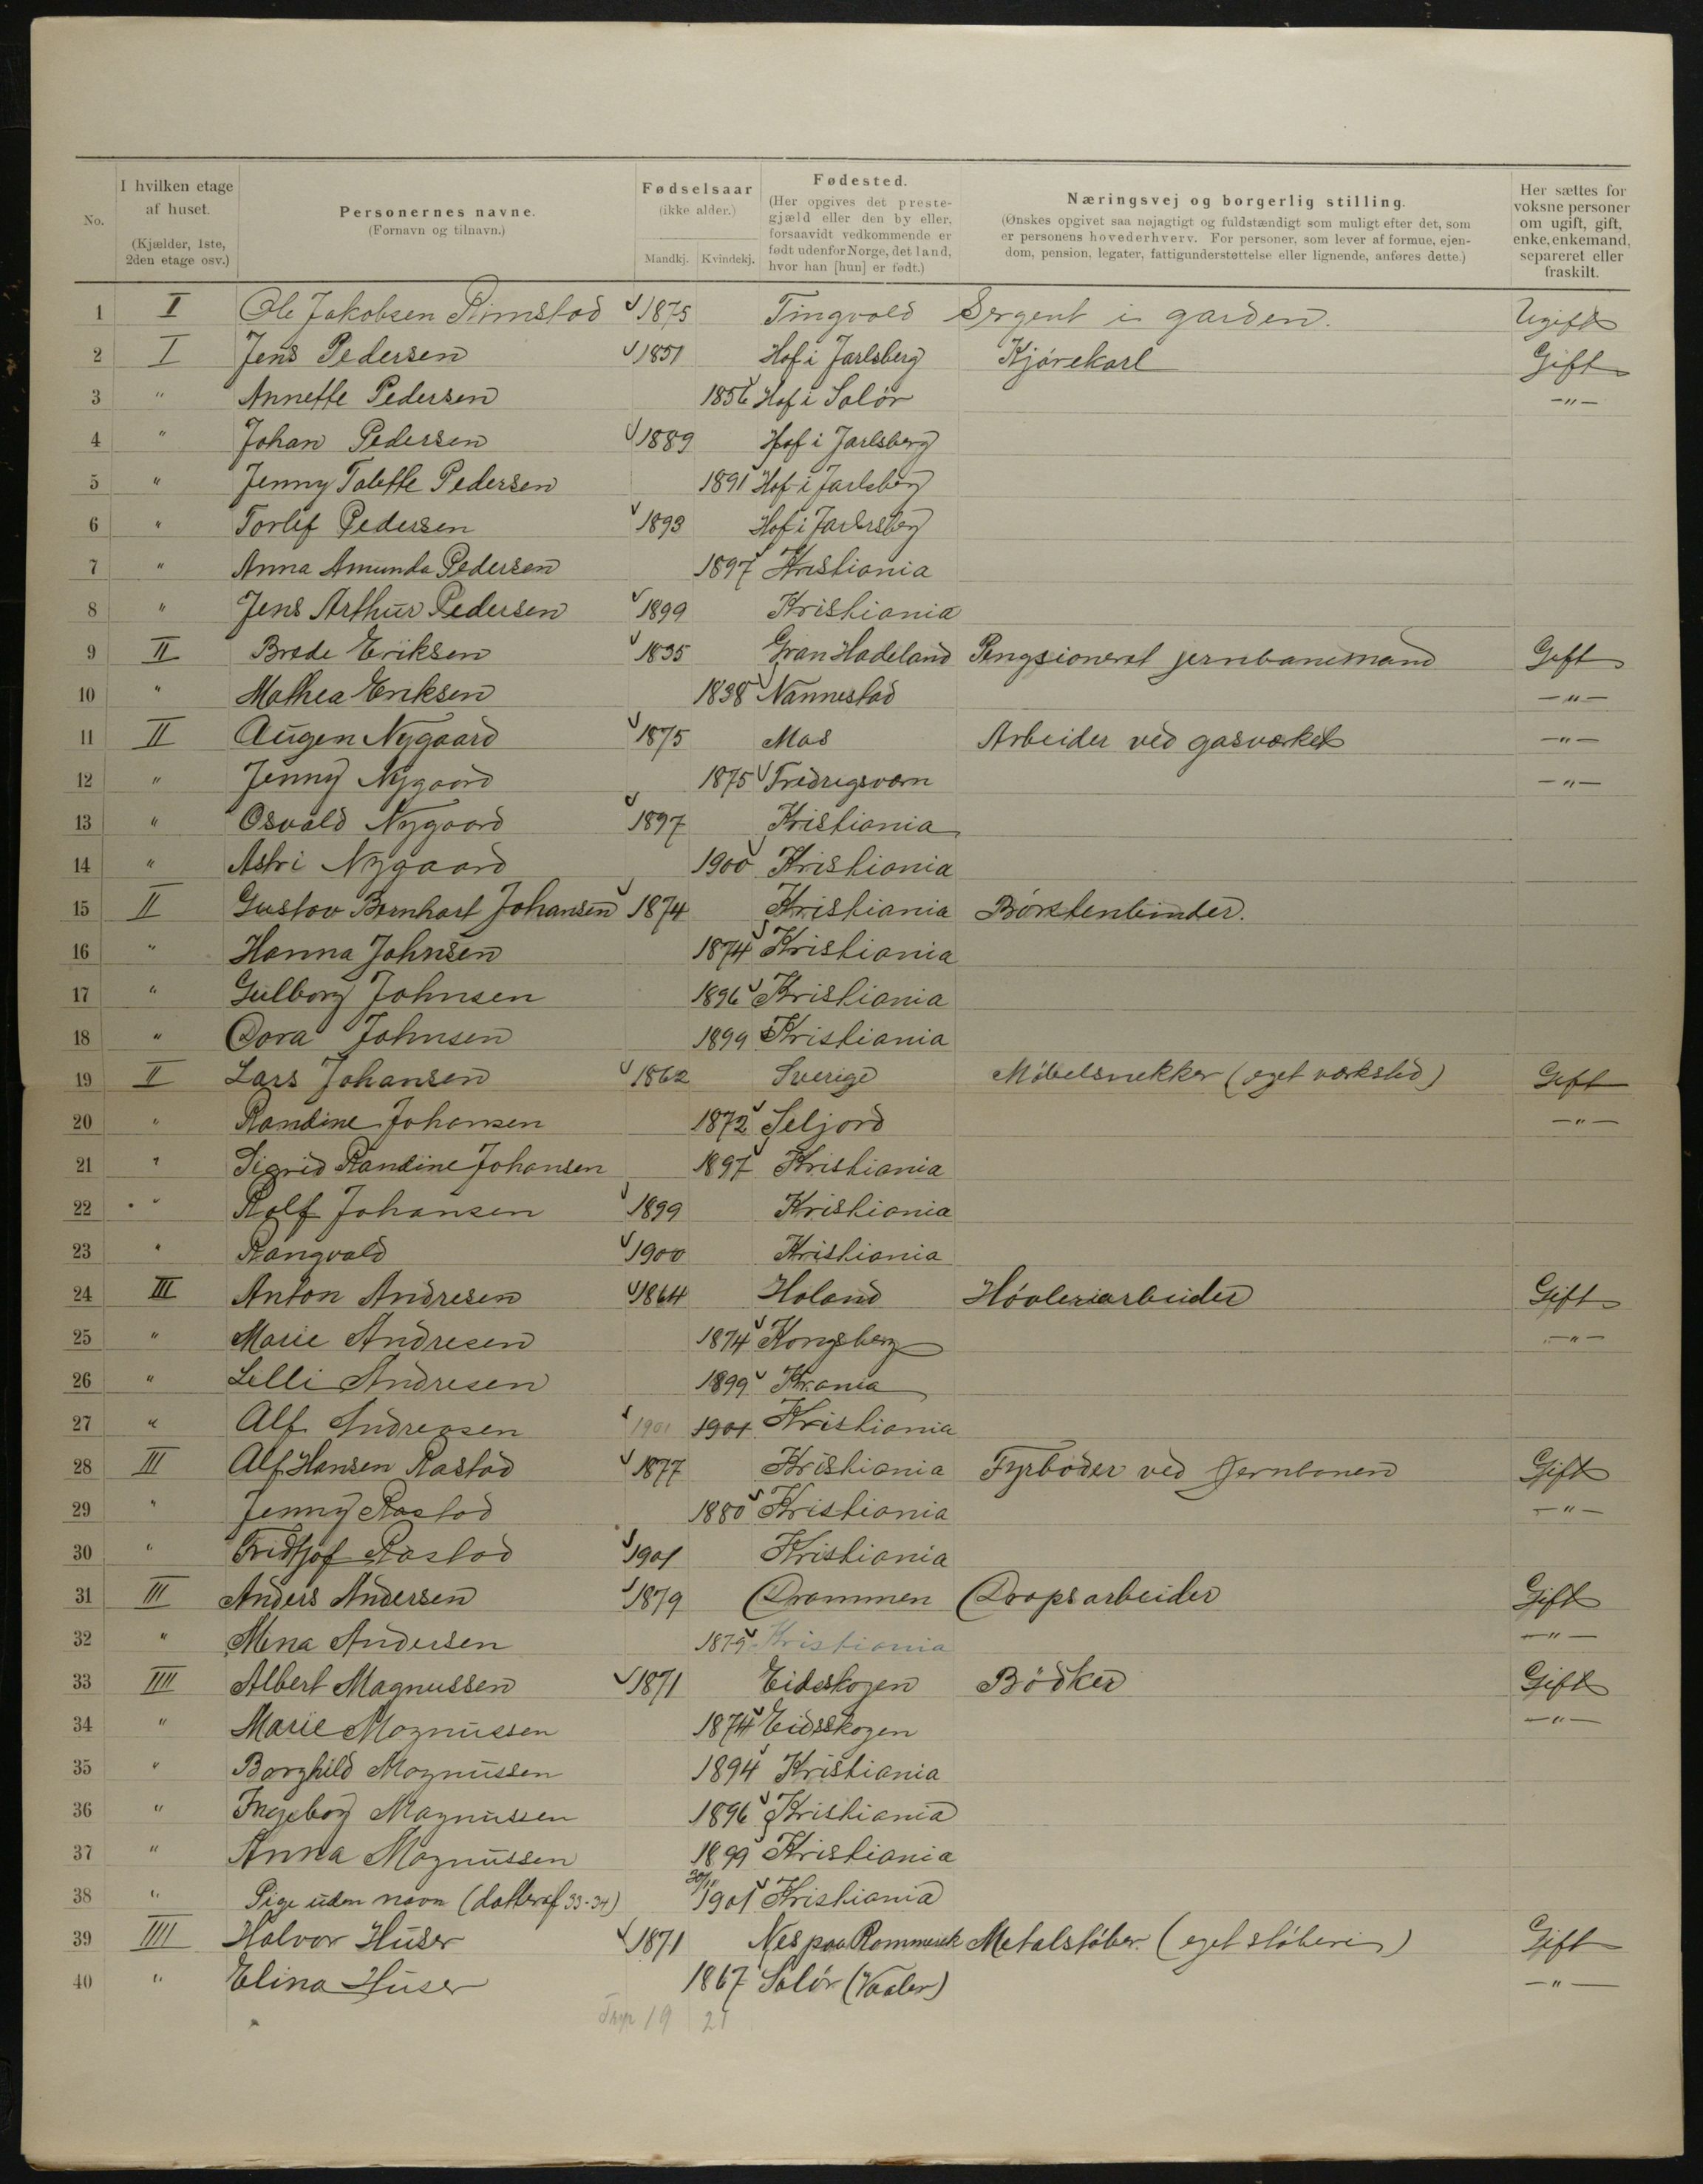 No. I hvilken etage af huset. (Kjælder, 1ste, 2den etage osv.) Personernes navne. (Fornavn og tilnavn.) Fødselsaar (ikke alder.) Mandkj. Kvindekj. Fødested. (Her opgives det prestegjæld eller den by eller, forsaavidt vedkommende er født udenfor Norge, det land, hvor han [hun] er født.) Næringsvej og borgerlig stilling. (Ønskes opgivet saa nøjagtigt og fuldstændigt som muligt efter det, som er personens hovederhverv. For personer, som lever af formue, ejendom, pension, legater, fattigunderstøttelse eller lignende, anføres dette.) Her sættes for voksne personer om ugift, gift, enke, enkemand, separeret eller fraskilt.
1 I Ole Jakobsen Rimstad 1875 Tingvold Sergent i garden. Ugift
2 I Jens Pedersen 1851 Hof i Jarlsberg Kjørekarl Gift
3 " Annette Pedersen 1856 Hof i Solør -"-
4 " Johan Pedersen 1889 Hof i Jarlsberg
5 " Jenny Talette Pedersen 1891 Hof i Jarlsberg
6 " Torlif Pedersen 1893 Hof i Jarlsberg
7 " Anna Amunda Pedersen 1897 Kristiania
8 " Jens Arthur Pedersen 1899 Kristiania
9 II Brede Eriksen 1835 Gran Hadeland Pengsioneret jernbanemand Gift
10 " Mathea Eriksen 1838 Nannestad -"-
11 II Augen Nygaard 1875 Mos Arbeider ved gasværket -"-
12 " Jenny Nygaard 1875 Fredrigsværn -"-
13 " Osvald Nygaard 1897 Kristiania
14 " Astri Nygaard 1900 Kristiania
15 II Gustav Bernhart Johansen 1874 Kristiania Børstenbinder.
16 " Hanna Johnsen 1874 Kristiania
17 " Gulborg Johnsen 1896 Kristiania
18 " Dora Johnsen 1899 Kristiania
19 II Lars Johansen 1862 Sverige Møbelsnekker (eget værksted) Gift
20 " Randine Johansen 1872 Seljord -"-
21 " Sigrid Randine Johansen 1897 Kristiania
22 " Rolf Johansen 1899 Kristiania
23 " Rangvald 1900 Kristiania
24 III Anton Andresen 1864 Holand Høvleriarbeider Gift
25 " Marie Andresen 1874 Kongsberg -"-
26 " Lilli Andresen 1899 Kr.ania
27 " Alf Andreasen 1901 1901 Kristiania
28 III Alf Hansen Rastad 1877 Kristiania Fyrbøder ved Jernbanen Gift
29 " Jenny Rastad 1880 Kristiania -"-
30 " Fridtjof Rastad 1901 Kristiania
31 III Anders Andersen 1879 Drammen Dropsarbeider Gift
32 " Mina Andersen 1879 Kristiania -"-
33 IIII Albert Magnussen 1871 Eideskogen Bødker Gift
34 " Marie Magnussen 1874 Eidsskogen -"-
35 " Borghild Magnussen 1894 Kristiania
36 " Ingeborg Magnussen 1896 Kristiania
37 " Anna Magnussen 1899 Kristiania
38 " Pige uden navn (datter af 33-34) 30/11 1901 Kristiania
39 IIII Halvor Huser 1871 Nes paa Rommerik Metalstøber. (eget støberi) Gift
40 " Elina Huser 1867 Solør (Vaaler) -"-
19 21